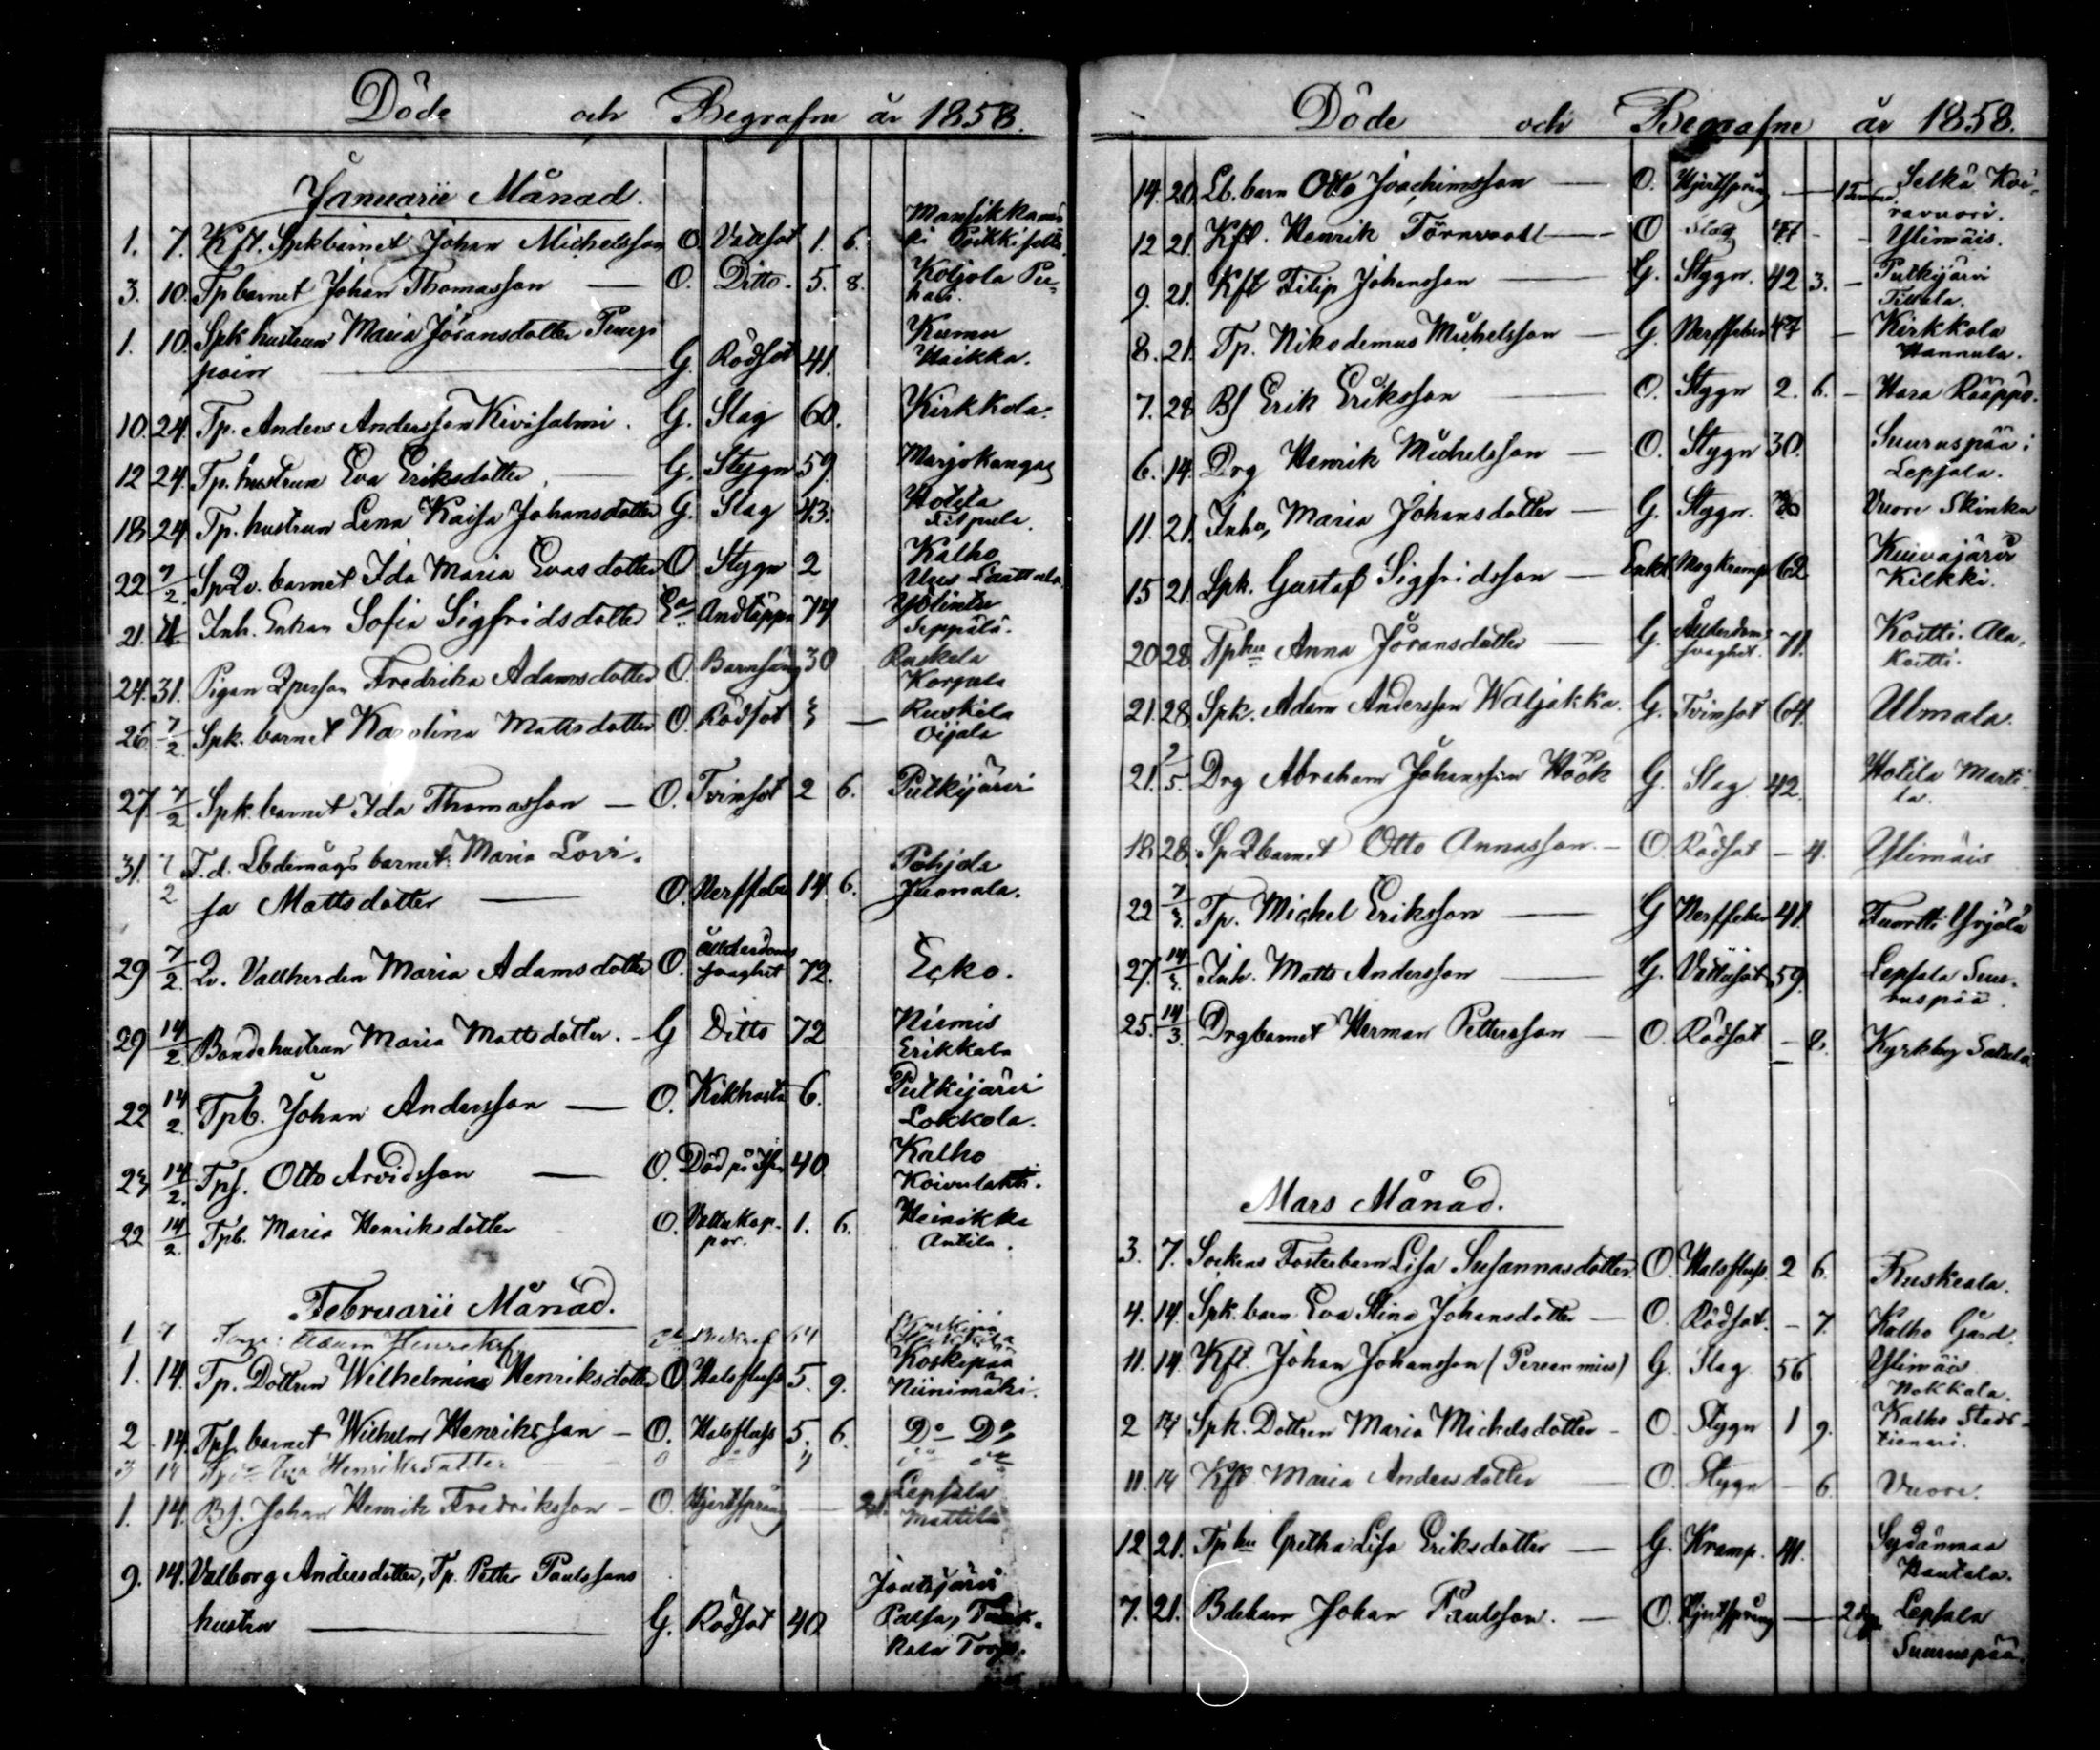 Döde och Begrafne år 1858.
Januarii Månad.
1. 7. Kft. Spkbarnet Johan Michelsson O. Vattsot 1. 6.
3. 10. Tpbarnet Johan Thomasson — O. Ditto. 5. 8. Koljola
1. 10. Spk hustrun Maria Jöransdotter
G. Rödsot 41. Haikka.
10. 24. Tp. Anders Andersson Kivisalmi. G. Slag 60. Kirkkola.
12 24. Tp. hustrun Eva Eriksdotter — G. Stygn 59. Marjokangas
18 24. Tp. hustrun Lena Kaisa Johansdotter G. Slag 43. Hotila
22 7/2. Sp Qv. barnet Ida Maria Evasdotter O Stygn 2 Kalho
21. Inh. Enkan Sofia Sigfridsdotter Ea Andtäppa 74 Seppälä.
24. 31. Pigan Qperson Fredrika Adamsdotter O. Barnsäng 30 Ruskela
Korpela
26 7/2 Spk. barnet Karolina Mattsdotter O. Rödsot 3 — Ruskila
Oijala
27 7/2 Spk. barnet Ida Thomasson — O. Tvinsot 2 6. Putkijärvi
31. 7/2 F. d. Lbdrmågs barnet Maria Lovi-
sa Mattsdotter — O. Nerffeber 14. 6. Pohjola
29 7/2. Qv. Vallherden Maria Adamsdotter O. Ållderdoms svaghet 72. Ecko.
29 14/2. Bondehustrun Maria Mattsdotter. - G Ditto 72 Niemis
Erikkala
22 14/2. Tpb. Johan Andersson — O. Kikhosta 6. Putkijärvi
Lokkola.
23 14/2. Tps. Otto Arvidsson — O. 40 Kalho
Koivulahti.
22 14/2. Tpb. Maria Henriksdotter O. Vattukop-
por. 1. 6. Heinikka
Antila.
Februarii Månad.
1 7 Adam Henriks 64
1. 14. Tp. Dottren Wilhelmina Henriksdotter O. Halsfluss 5. 9. Koskipää
Niinimäki.
2. 14. Tps barnet Wilhelm Henriksson — O. Halsfluss 5. 6. Do Do
3 14 Eva Henriksdotter
1. 14. Bs. Johan Henrik Fredriksson — O. Hjertsprång — Lepsala
Mattila
9. 14. Valborg Andersdotter, Tp. Petter Paulssons
hustru — G. Rödsot 40 Joutsjärvi
Torp.
Döde och Begrafne år 1858.
14. 20. Lb. barn Otto Joachimsson — O. Hjertsprång — Selkä Koi-
ravuori.
12 21. Kft. Henrik Törnroott — O Slag 47 - - Ylimäis.
9. 21. Kft Filip Johansson — G. Stygn. 42 3. - Putkijärvi
8. 21. Tp. Nikodemus Michelsson — G. Nerffeber 47 - Kirkkola
Hannula.
7. 28 Bs Erik Eriksson — O. Stygn 2. 6. - Hara Raappo.
6. 14. Drg Henrik Michelsson — O. Stygn 30. Suuruspää i
Lepsala.
11. 21. Inha, Maria Johansdotter — G. Stygn. Vuore Skinka
15 21. Spk. Gustaf Sigfridsson — Enkl. Magkramp 62 Kuivajärvi
Kilkki.
20 28 Tphu Anna Jöransdotter — G. Ållderdoms
svaghet. 71. Koitti. Ala-
Koitti.
21. 28. Spk. Adam Andersson Waljakka. G. Tvinsot 64. Ulmala.
21. 5. Drg Abraham Johansson Höök G. Slag 42. Hotila Marti-
la.
18. 28. Sp Qbarnet Otto Annasson. — O. Rödsot — 4. Ylimäis
22 7/3. Tp. Michel Eriksson — G Nerffeber 41. Yrjölä
27. 14/3. Inh. Matts Andersson — G. Vattusot 59. Lepsala Suu-
ruspää.
25. 14/3. Drgbarnet Herman Pettersson — O. Rödsot — 8. Kyrkby
Mars Månad.
3. 7. Sockens Fosterbarn Lisa Susannasdotter O. Halsfluss. 2 6. Ruskeala.
4. 14. Spk. barn Eva Stina Johansdotter — O. Rödsot. — 7. Kalho Gård.
11. 14. Kft. Johan Johansson G. Slag 56 Ylimäis
Nokkala.
2 14 Spk. Dottren Maria Michelsdotter — O. Stygn 1 9. Kalho
11. 14 Kft Maria Andersdotter O. Stygn — 6. Vuore.
12 21. Tp hu Gretha Lisa Eriksdotter — G. Kramp. 41. Sydänmaa
Hautala.
7. 21. Bdebarn Johan Paulsson. — O. Hjertsprång — 2 dgr Lepsala
Suuruspää.